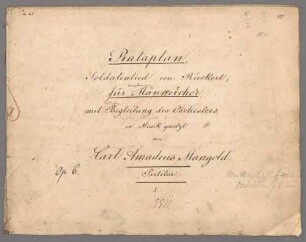 Rataplan,
Soldatenlied von Rückert,
für Männerchor
mit Begleitung des Orchesters
in Musik gesetzt
von
Carl Amadeus Mangold.
Op. 6.
Partitur